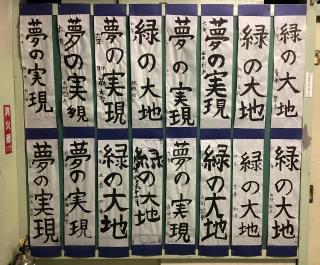 緑の大地
緑の大地
夢の実現
夢の実現
緑の大地
夢の実現
夢の実現
夢の実現
緑の大地
緑の大地
緑の大地
夢の実現
緑の大地
緑の大地
夢の実現
夢の実現
消火器